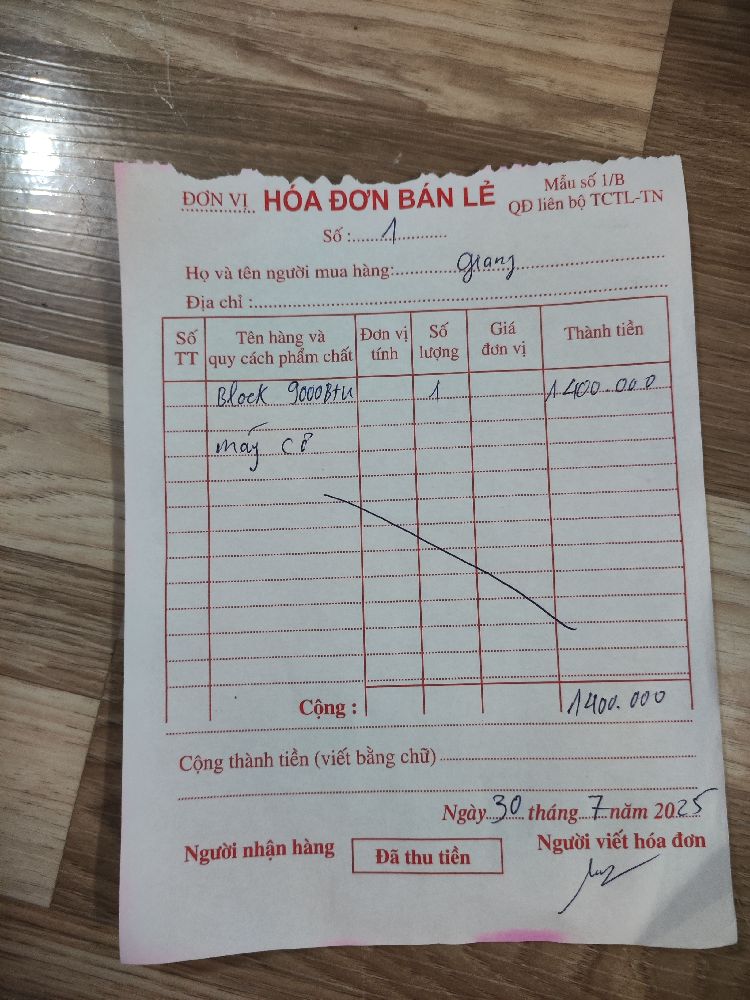 ĐƠN VỊ HÓA ĐƠN BÁN LẺ Mẫu số 1/B
QĐ liên bộ TCTL-TN
Số : 1
Họ và tên người mua hàng: Giang
Địa chỉ :
Số TT Tên hàng và quy cách phẩm chất Đơn vị tính Số lượng Giá đơn vị Thành tiền
Block 9000Btu 1 1400.000
máy cũ
Cộng : 1400.000
Cộng thành tiền (viết bằng chữ)
Ngày 30 tháng 7 năm 2025
Người nhận hàng Đã thu tiền Người viết hóa đơn